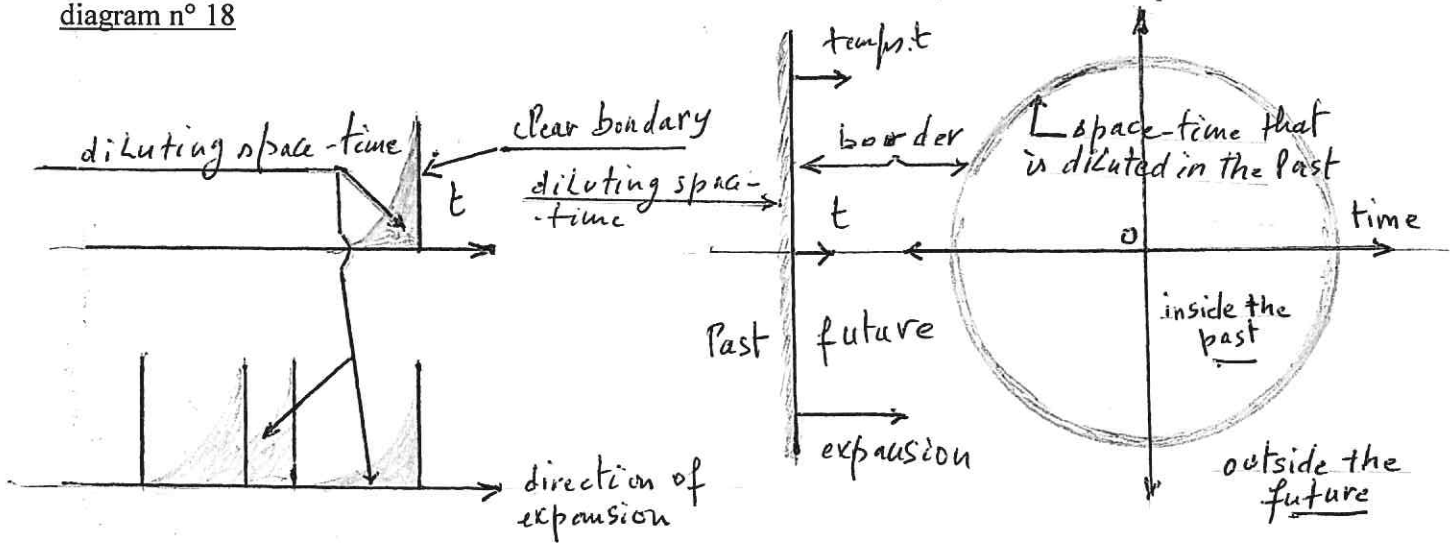 diagram n° 18
diluting space-time
clear bondary
t
direction of
expansion
temps.t
border
diluting space-
-time
t
Past
future
expansion
space-time that
is diluted in the Past
time
o
inside the
past
outside the
future